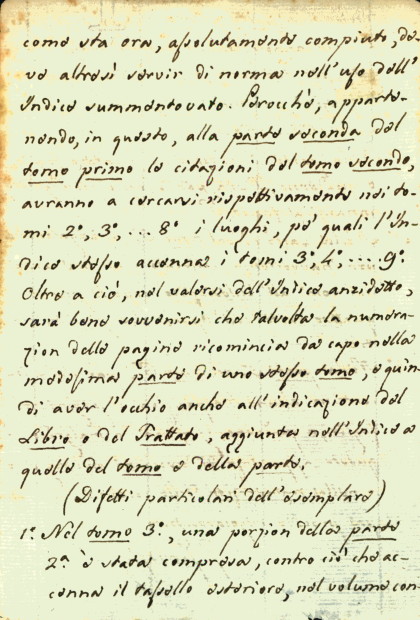 come sta ora, assolutamente compiuto, de-
ve altresì servir di norma nell'uso dell'
Indice summentovato. Perocchè, apparte-
nendo, in questo, alla parte seconda del
tomo primo le citazioni del tomo secondo,
avranno a cercarsi rispettivamente nei to-
mi 2°, 3°, ... 8° i luoghi, pe' quali l'In-
dice stesso accenna i tomi 3°, 4°, ... 9°.
Oltre a ciò, nel valersi dell'Indice anzidetto,
sarà bene sovvenirsi che talvolta la numera-
zion delle pagine ricomincia da capo nella
medesima parte di uno stesso tomo, e quin-
di aver l'occhio anche all'indicazione del
Libro o del Trattato, aggiunta nell'Indice a
quelle del tomo e della parte.
(Difetti particolari dell'esemplare)
1°. Nel tomo 3°, una porzion della parte
2ª è stata compresa, contro ciò che ac-
cenna il tassello esteriore, nel volume con-